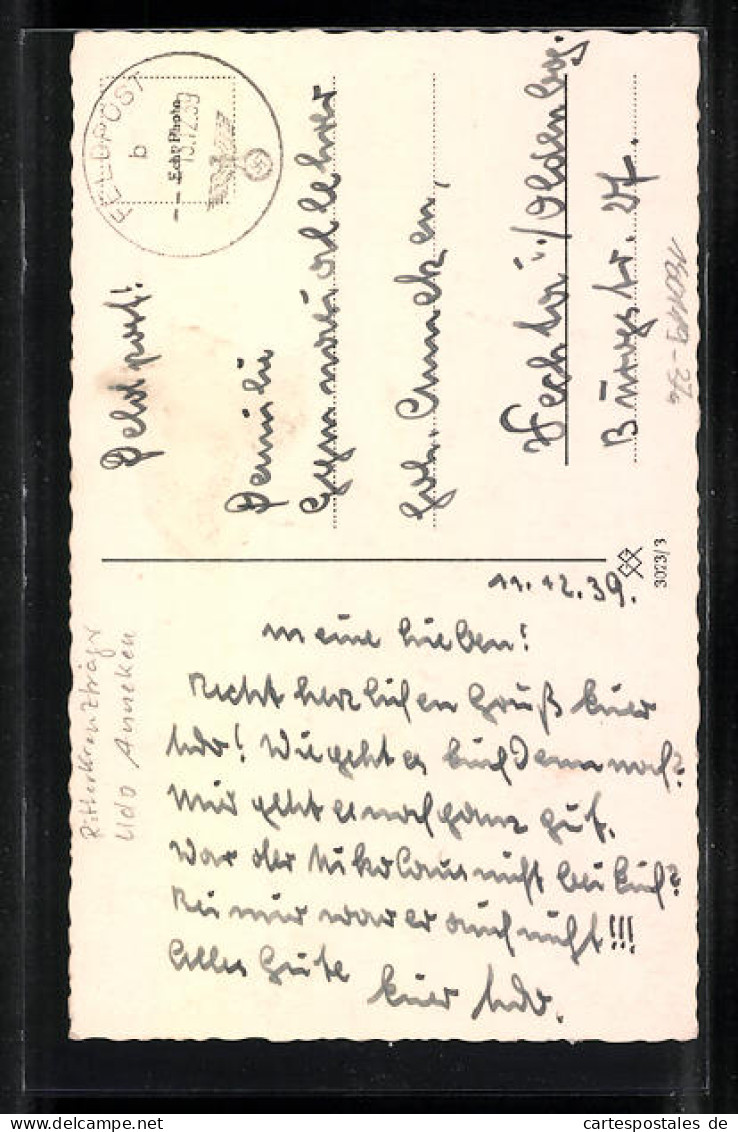 FELDPOST
b
Echt Photo
13.12.39
Feldpost!
Familie
Gymnasiallehrer
Joh. Anneken,
Vechta i./Oldenbg.
Burgstr. 27.
3023/3
11.12.39.
Meine Lieben!
Recht herzlichen Gruß Euer
Udo! Wie geht es Euch denn noch?
Mir geht es noch ganz gut.
War der Nikolaus nicht bei Euch?
Bei mir war er auch nicht!!!
Alles Gute
Euer Udo.
Ritterkreuzträger
Udo Anneken
cartespostales de